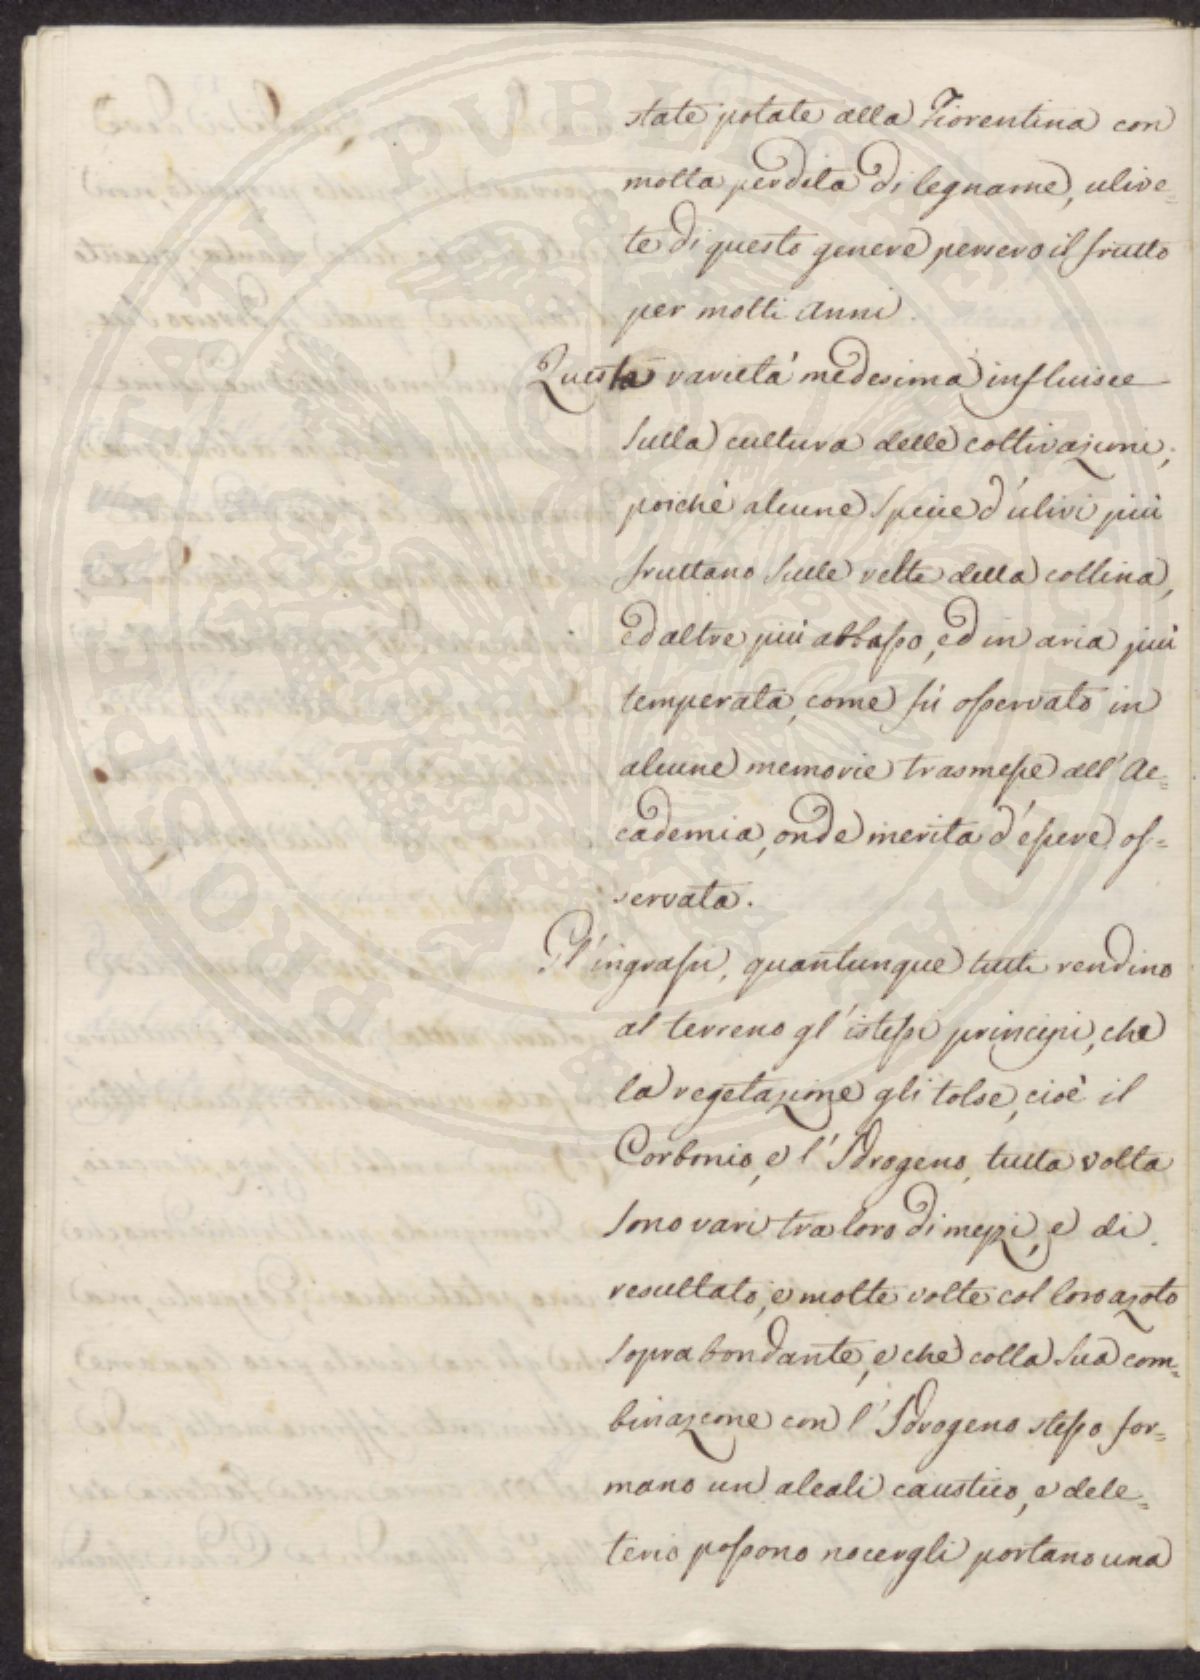 state potate alla Fiorentina con
molta perdita di legname, ulive=
te di questo genere persero il frutto
per molti anni.
Questa varietà medesima influisce
sulla cultura delle coltivazioni;
poichè alcune specie d'ulivi più
fruttano sulle vette della collina,
ed altre più abbasso, ed in aria più
temperata, come fù osservato in
alcune memorie trasmesse all'Ac=
cademia, onde merita d'essere os=
servata.
Gl'ingrassi, quantunque tutti rendino
al terreno gl'istessi principi, che
la vegetazione gli tolse, cioè il
Carbonio, e l'Idrogeno, tutta volta
sono vari tra loro di mezzi, e di
resultato, e molte volte col loro azoto
soprabondante, e che colla sua com=
binazione con l'Idrogeno stesso for=
mano un alcali caustico, e dele=
terio possono nocergli portano una
PROSPERITATI PUBLICAE AUGENDAE